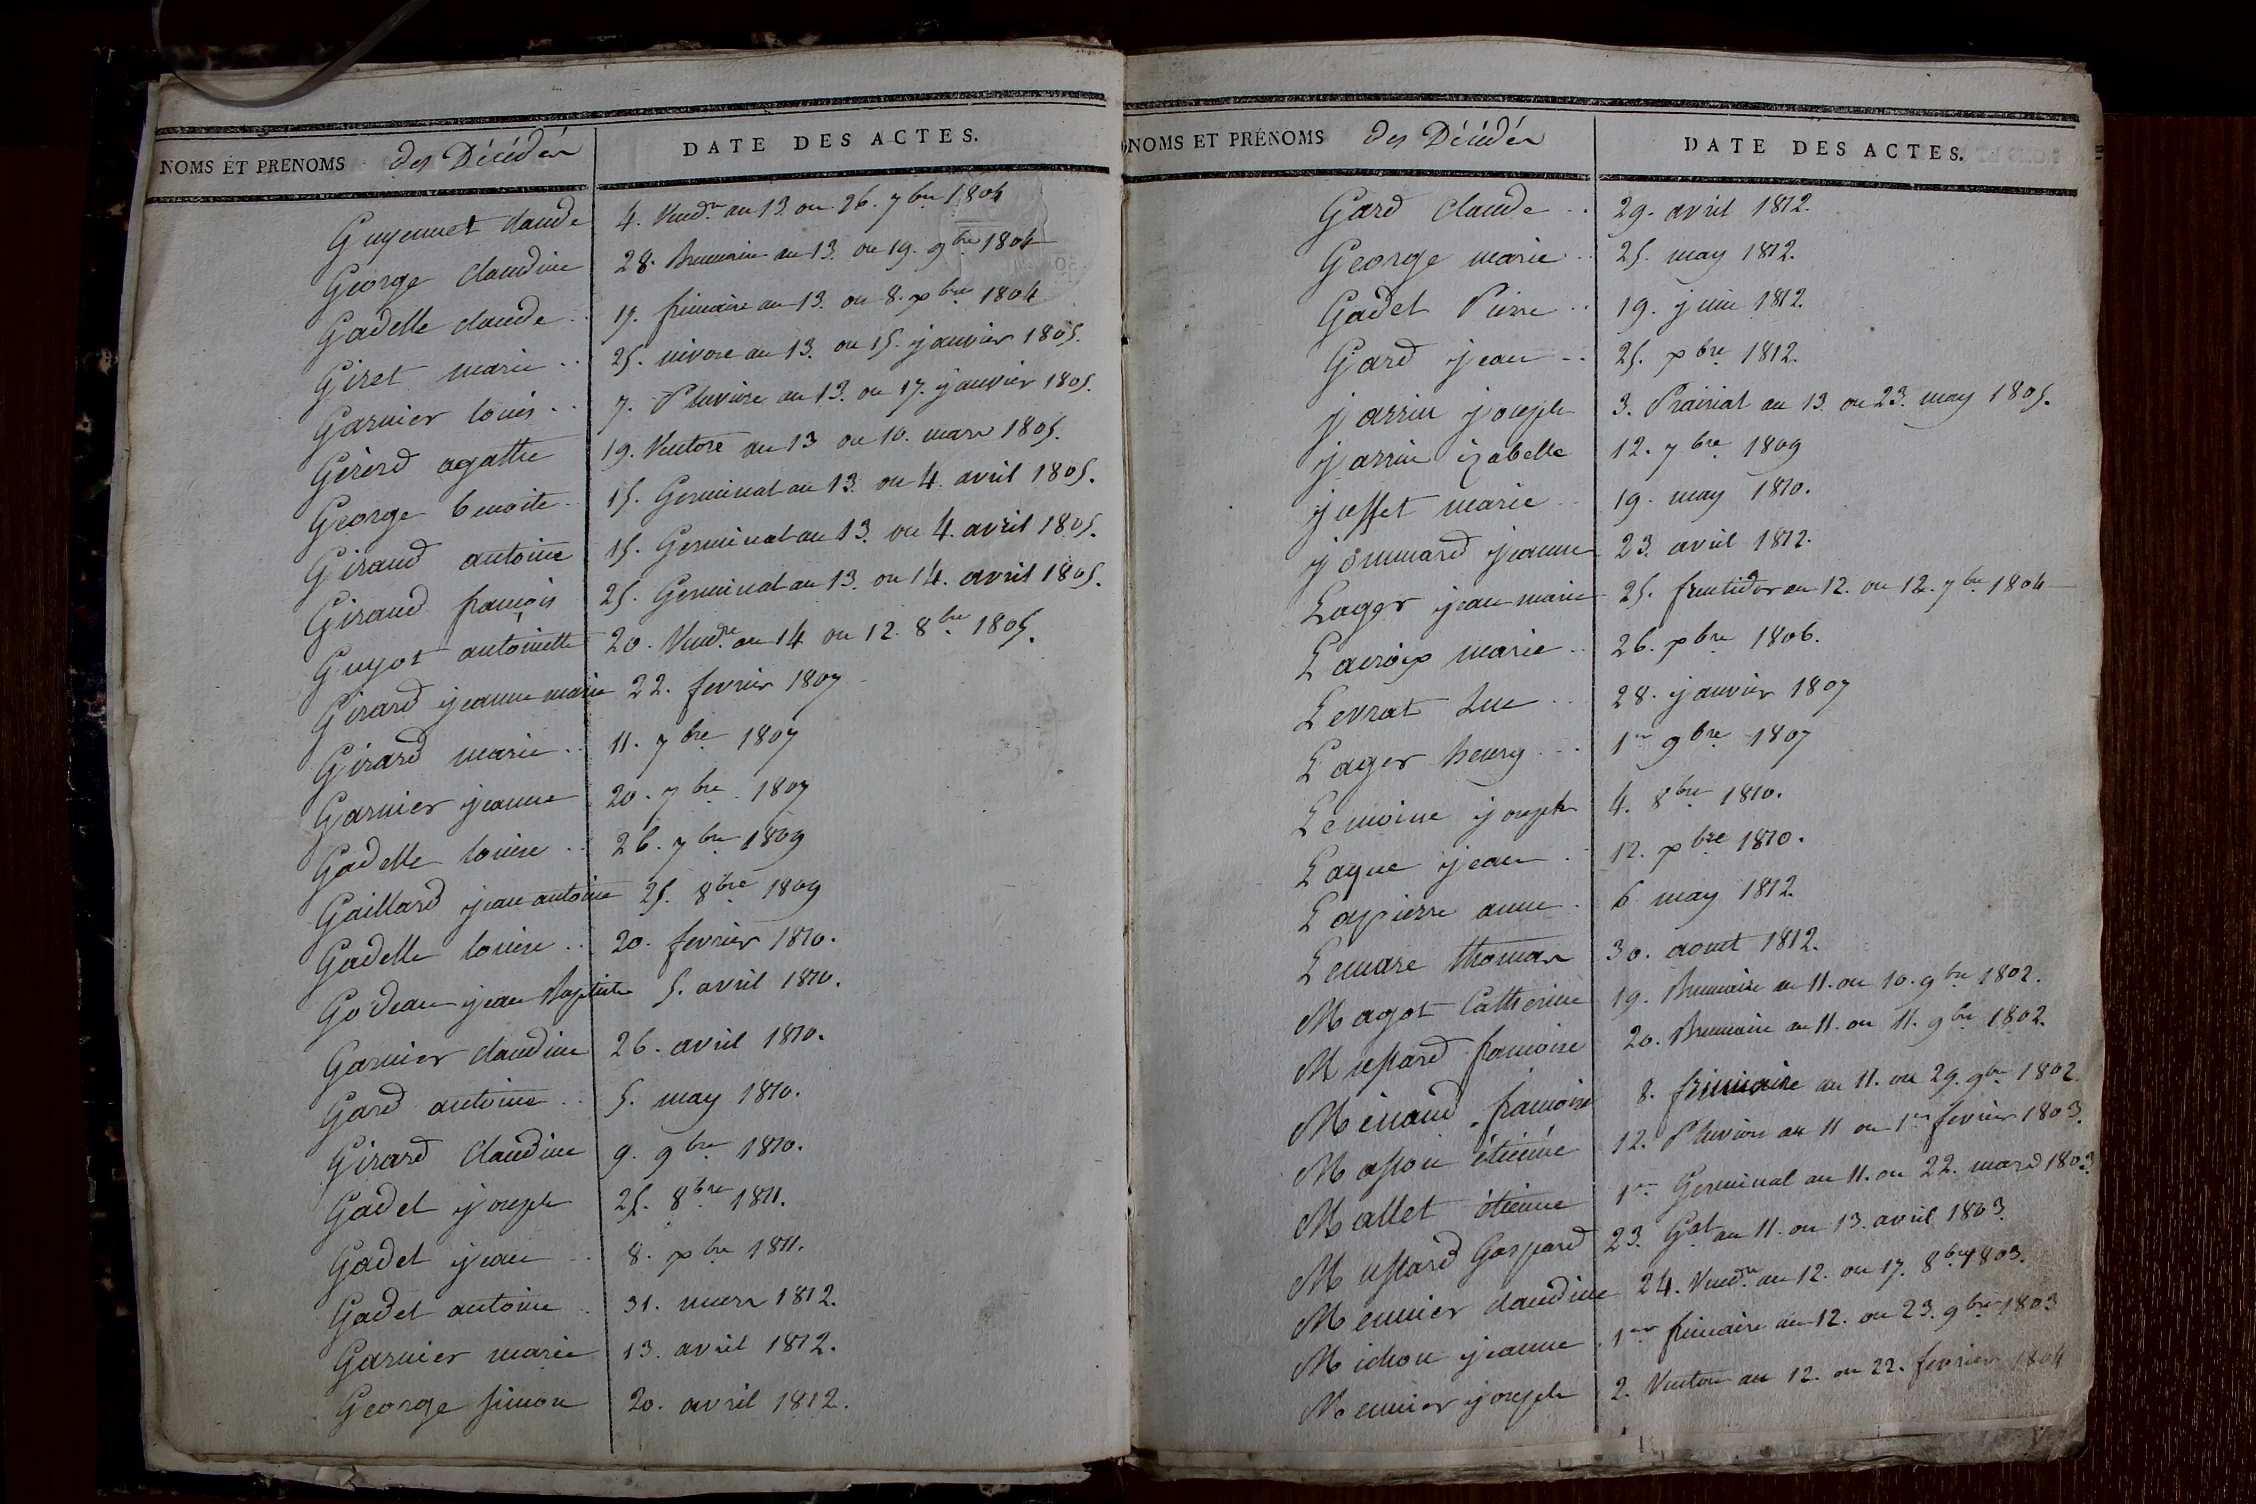 NOMS ET PRENOMS des Décédés DATE DES ACTES.
Guyennet claude 4. Vend.re an 13. ou 26. 7bre 1804
George claudine 28. Brumaire an 13. ou 19. 9bre 1804
Gadelle claude .. 17. frimaire an 13. ou 8. xbre 1804
Giret marie .. 25. nivose an 13. ou 15. janvier 1805.
Garnier louis .. 7. Pluviose an 13. ou 17. janvier 1805.
Gererd agathe 19. Ventose an 13 ou 10. mars 1805.
George benoite .. 15. Germinal an 13. ou 4. avril 1805.
Giraud antoine 15. Germinal an 13. ou 4. avril 1805.
Giraud françois 25. Germinal an 13. ou 14. avril 1805.
Guyot antoinette 20. Vend.re an 14 ou 12. 8bre 1805.
Girard jeanne marie 22. fevrier 1807
Girard marie .. 11. 7bre 1807
Garnier jeanne 20. 7bre 1807
Gadelle louise .. 26. 7bre 1809
Gaillard jean antoine 25. 8bre 1809
Gadelle louise .. 20. fevrier 1810.
Godeau jean Baptiste 5. avril 1810.
Garnier claudine 26. avril 1810.
Gard antoine .. 5. may 1810.
Girard Claudine 9. 9bre 1810.
Gadet joseph 25. 8bre 1811.
Gadet jean .. 8. xbre 1811.
Gadet antoine .. 31. mars 1812.
Garnier marie 13. avril 1812.
George simon 20. avril 1812.
NOMS ET PRÉNOMS des Décédés DATE DES ACTES.
Gard claude .. 29. avril 1812.
George marie .. 25. may 1812.
Gadet Pierre .. 19. juin 1812.
Gard jean .. 25. xbre 1812.
jassin joseph 3. Prairial an 13. ou 23. may 1805.
jassin izabelle 12. 7bre 1809
juffet marie .. 19. may 1810.
jommard jeanne 23. avril 1812.
Lager jean marie 25. fructidor an 12. ou 12. 7bre 1804
Lacroix marie .. 26. xbre 1806.
Levrat Luc .. 28. janvier 1807
Lager henry .. 1er 9bre 1807
Lemoine joseph 4. 8bre 1810.
Laque jean .. 12. xbre 1810.
Lapierre anne . 6 may 1812
Lemare thomas 30. aout 1812.
Magot Catherine 19. Brumaire an 11. ou 10. 9bre 1802.
Mustard françoise 20. Brumaire an 11. ou 11. 9bre 1802.
Menaud françoise 8. frimaire an 11. ou 29. 9bre 1802
Masson étiénne 12. Pluviose an 11 ou 1er fevrier 1803.
Mallet étienne 1er Germinal an 11. ou 22. mars 1803.
Mustard Gaspard 23. Gal an 11. ou 13. avril 1803.
Meunier claudine 24. Vend.re an 12. ou 17. 8bre 1803.
Michon jeanne 1er frimaire an 12. ou 23. 9bre 1803
Meunier joseph 2. Ventose an 12. ou 22. fevrier 1804